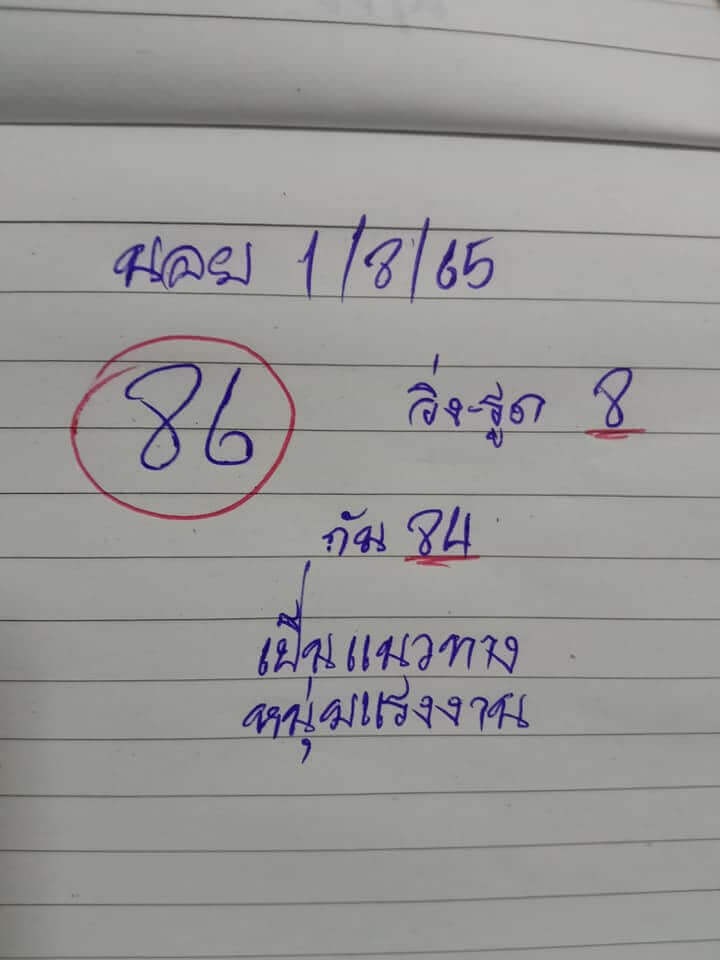 นอย 1/8/65
86 วิ่ง-รูด 8
กัน 84
เป็นแนวทาง
หนุ่มแรงงาน